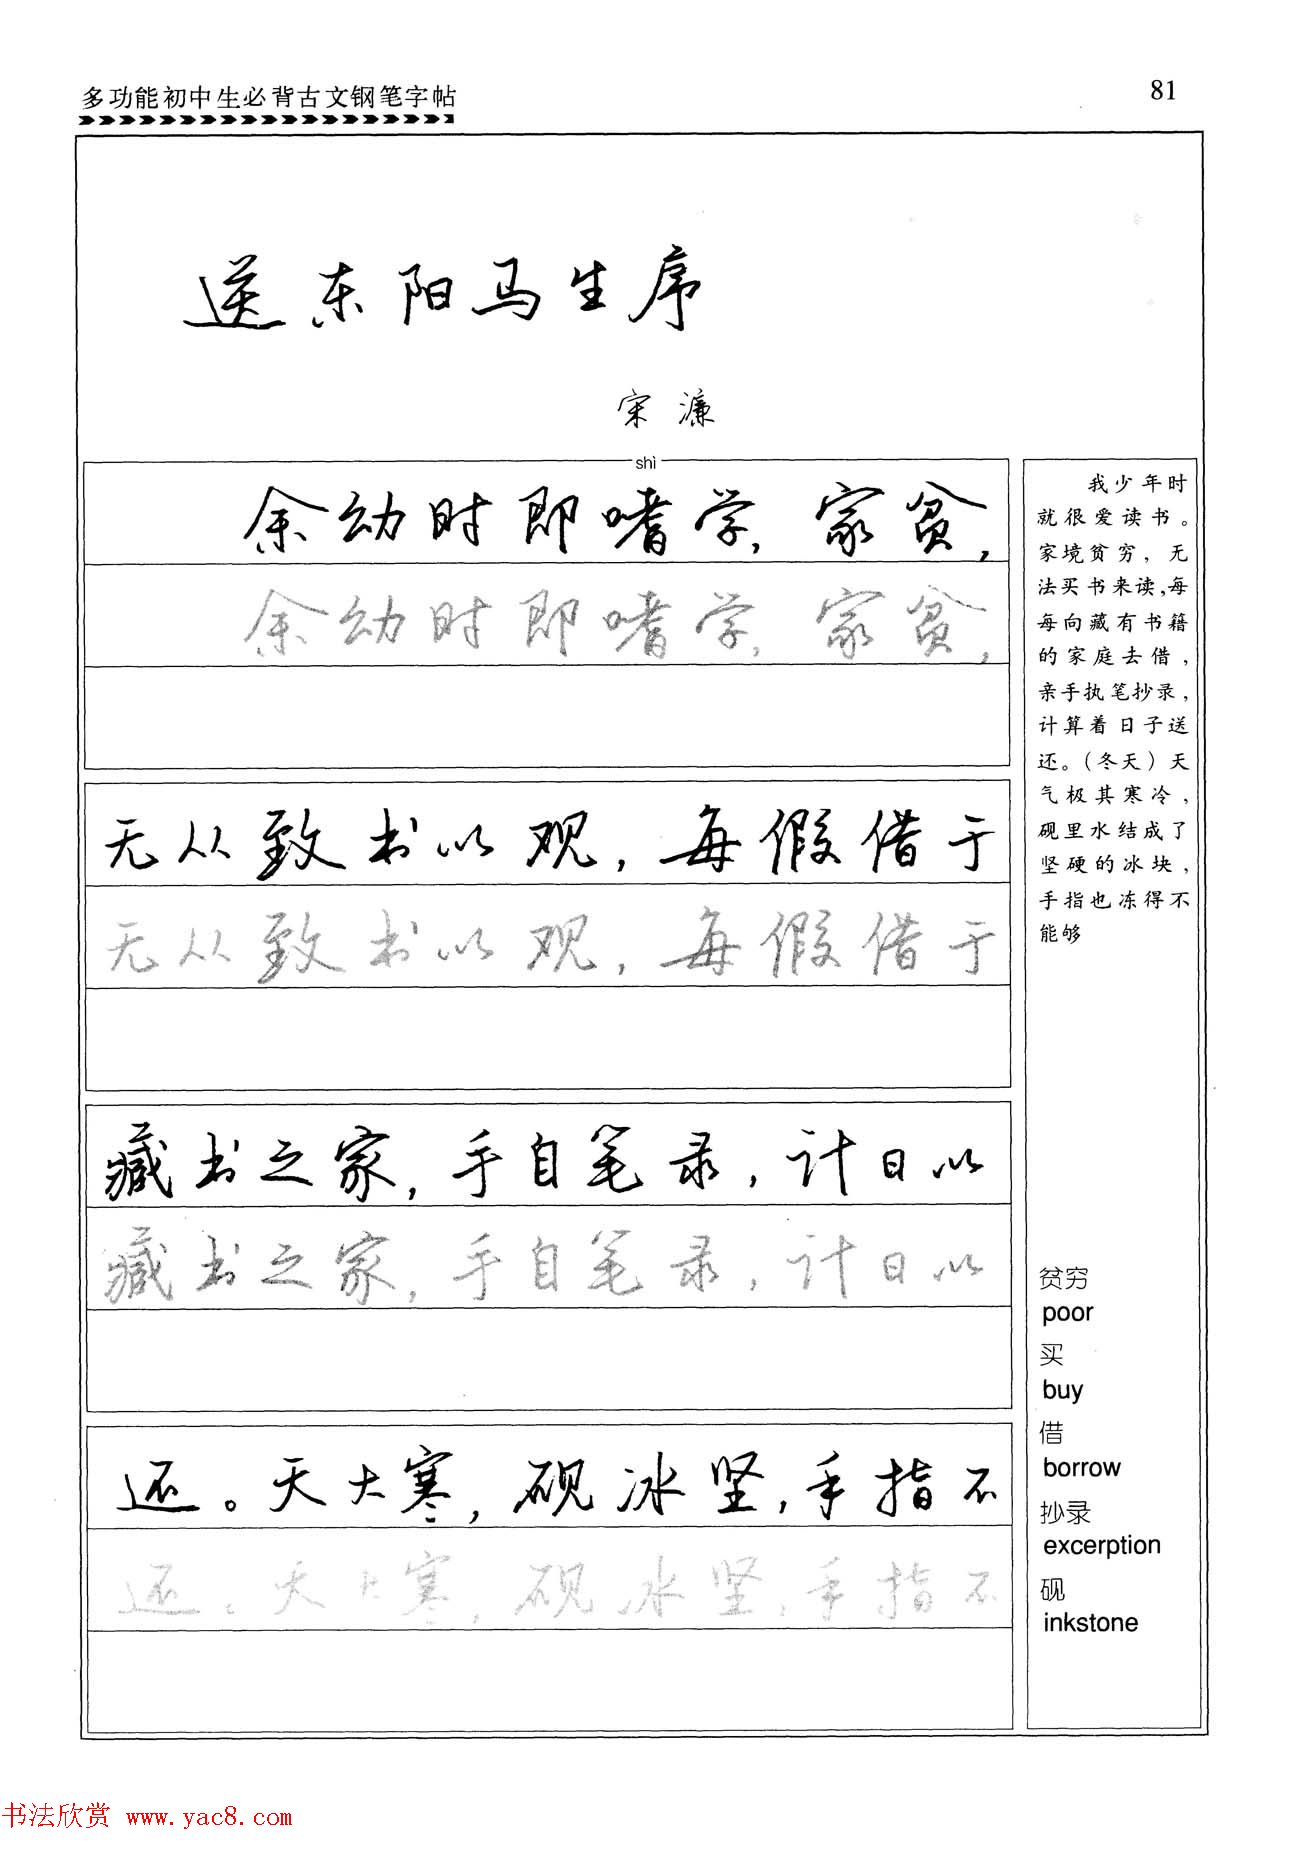 多功能初中生必背古文钢笔字帖
81
送东阳马生序
宋濂
shì
余幼时即嗜学，家贫，
余幼时即嗜学，家贫，
无从致书以观，每假借于
无从致书以观，每假借于
藏书之家，手自笔录，计日以
藏书之家，手自笔录，计日以
还。天大寒，砚冰坚，手指不
还。天大寒，砚冰坚，手指不
我少年时
就很爱读书。
家境贫穷，无
法买书来读，每
每向藏有书籍
的家庭去借，
亲手执笔抄录，
计算着日子送
还。（冬天）天
气极其寒冷，
砚里水结成了
坚硬的冰块，
手指也冻得不
能够
贫穷
poor
买
buy
借
borrow
抄录
excerption
砚
inkstone
书法欣赏 www.yac8.com